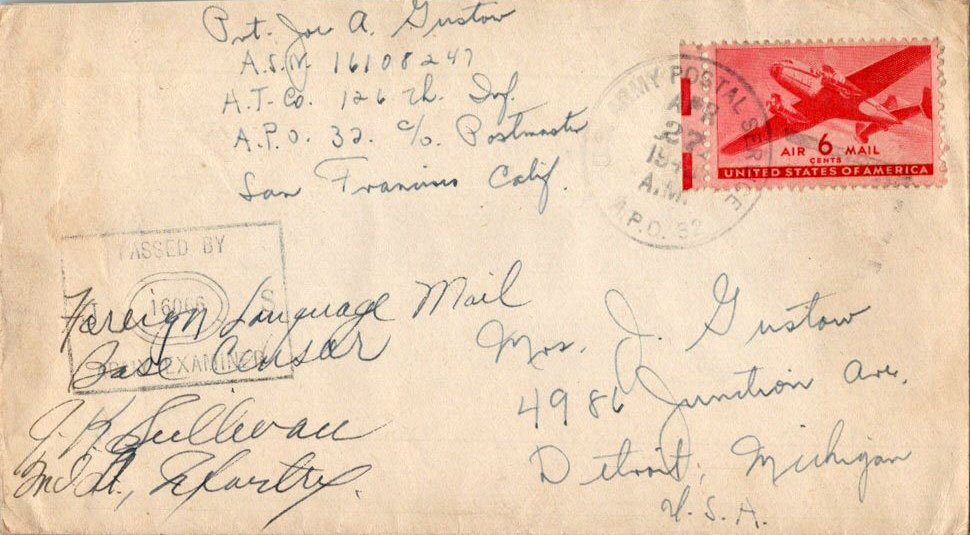 Pvt. Joe A. Gustow
A.S.N. 16108247
A.T. Co. 126 th. Inf.
A.P.O. 32. c/o Postmaster
San Francisco Calif.
U.S. ARMY POSTAL SERVICE
APR
27
194
A.M.
A.P.O. 32
AIR 6 MAIL
CENTS
UNITED STATES OF AMERICA
PASSED BY
16066 S
ARMY EXAMINER
Foreign Language Mail
Base Censor
J. K. Sullivan
2nd Lt., Infantry.
Mrs. J. Gustow
4986 Junction Ave.
Detroit, Michigan
U.S.A.